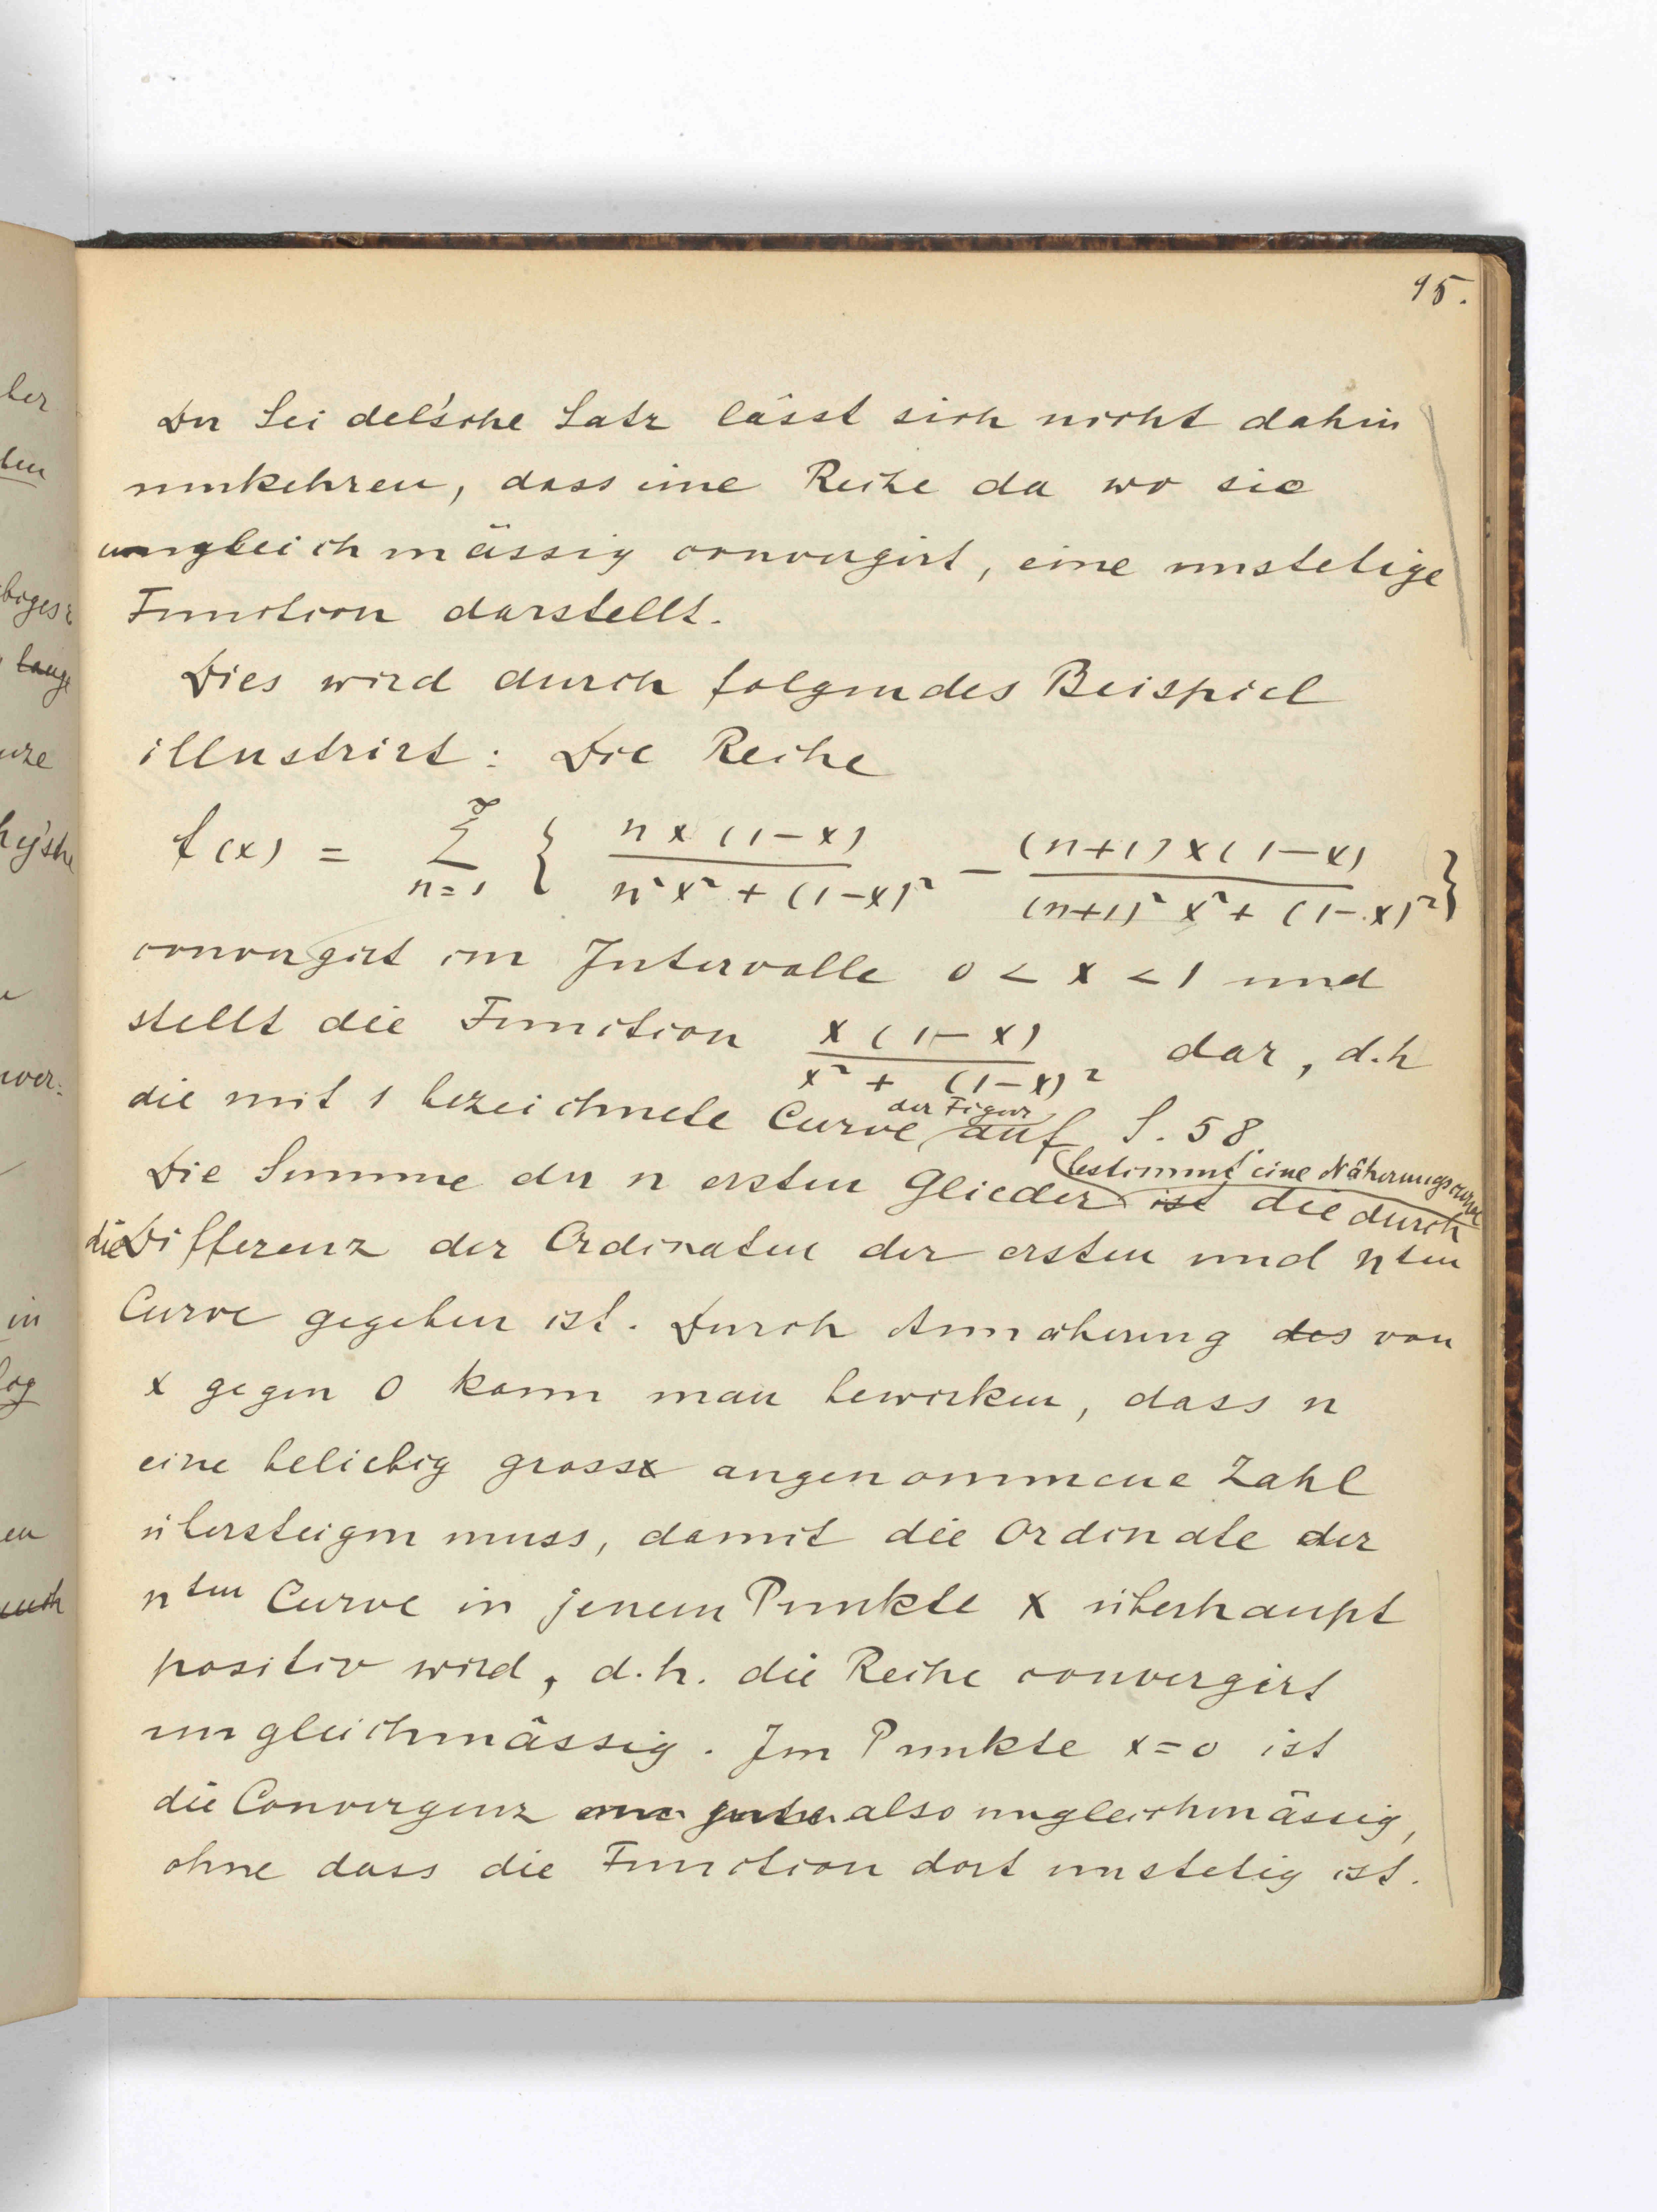 95.
Der Seidel'sche Satz lässt sich nicht dahin
umkehren, dass eine Reihe da wo sie
ungleichmässig convergirt, eine unstetige
Function darstellt.
Dies wird durch folgendes Beispiel
illustrirt: Die Reihe
f(x) = ∑_{n=1}^{∞} { \frac{nx(1-x)}{n²x² + (1-x)²} - \frac{(n+1)x(1-x)}{(n+1)²x² + (1-x)²} }
convergirt im Intervalle 0 < x < 1 und
stellt die Function \frac{x(1-x)}{x² + (1-x)²} dar, d.h
die mit 1 bezeichnete Curve der Figur auf S. 58.
Die Summe der n ersten Glieder ist bestimmt eine Näherungscurve die durch
die Differenz der Ordinaten der ersten und nten
Curve gegeben ist. Durch Annäherung des von
x gegen 0 kann man bewirken, dass n
eine beliebig gross angenommene Zahl
übersteigen muss, damit die Ordinate der
nten Curve in jenem Punkte x überhaupt
positiv wird, d.h. die Reihe convergirt
ungleichmässig. Im Punkte x=0 ist
die Convergenz also ungleichmässig,
ohne dass die Function dort unstetig ist.
ber
ben
lange
in
en